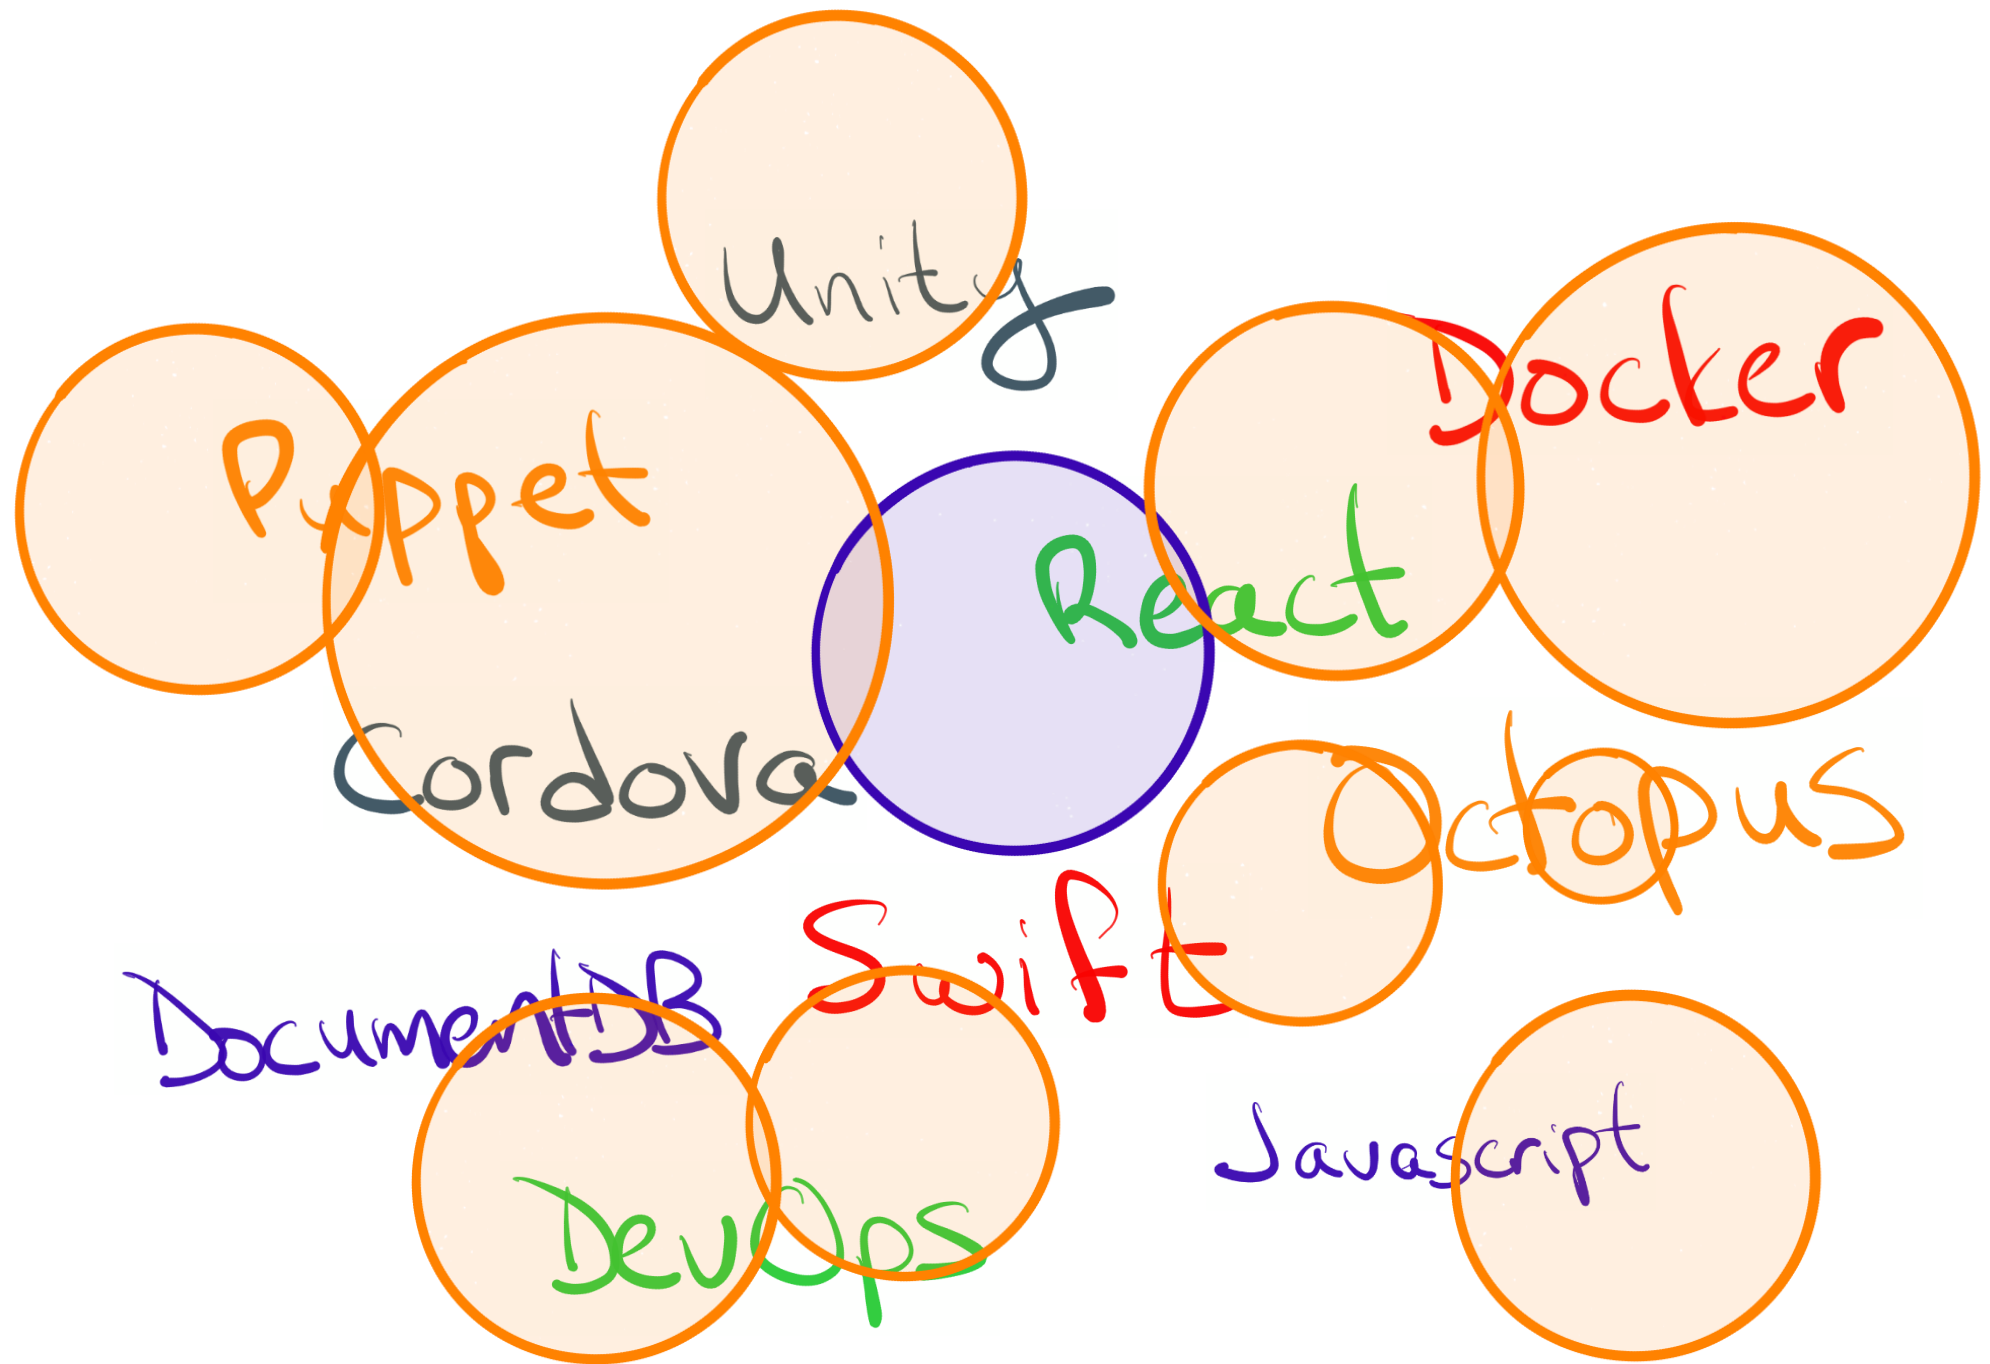 Unity
Docker
Puppet
React
Cordova
Octopus
Swift
DocumentDB
Javascript
DevOps